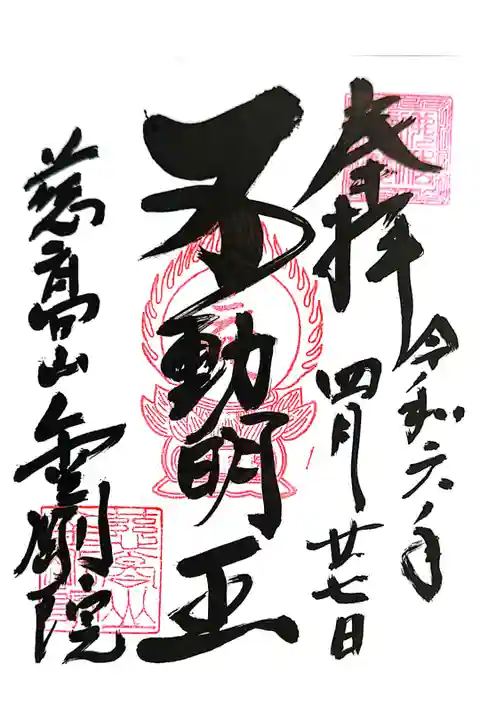 奉拝
令和六年
四月廿七日
不動明王
慈高山 金剛院